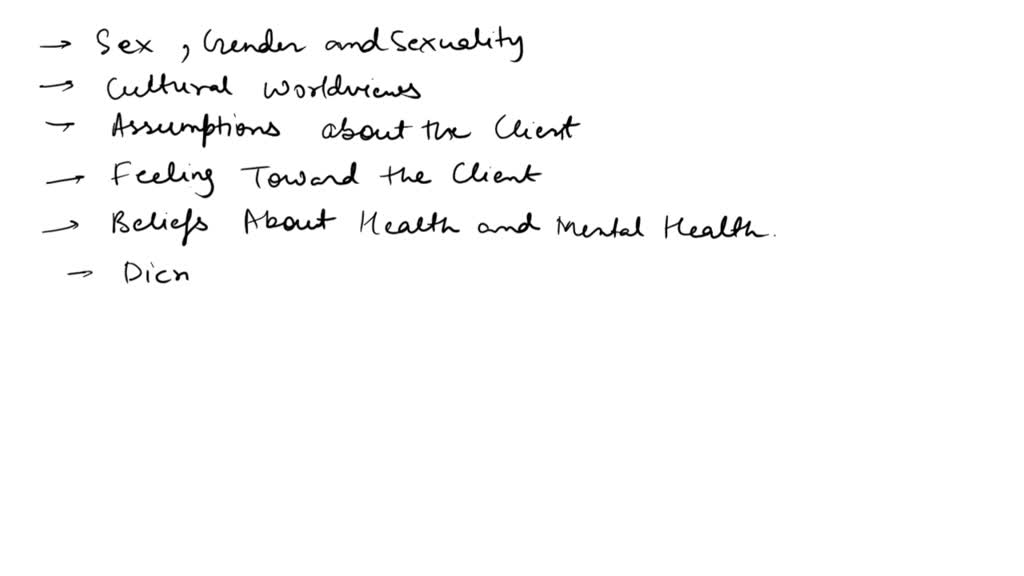 → Sex, Gender and Sexuality
→ Cultural Worldviews
→ Assumptions about the Client
→ Feeling Toward the Client
→ Beliefs About Health and Mental Health.
→ Dicn